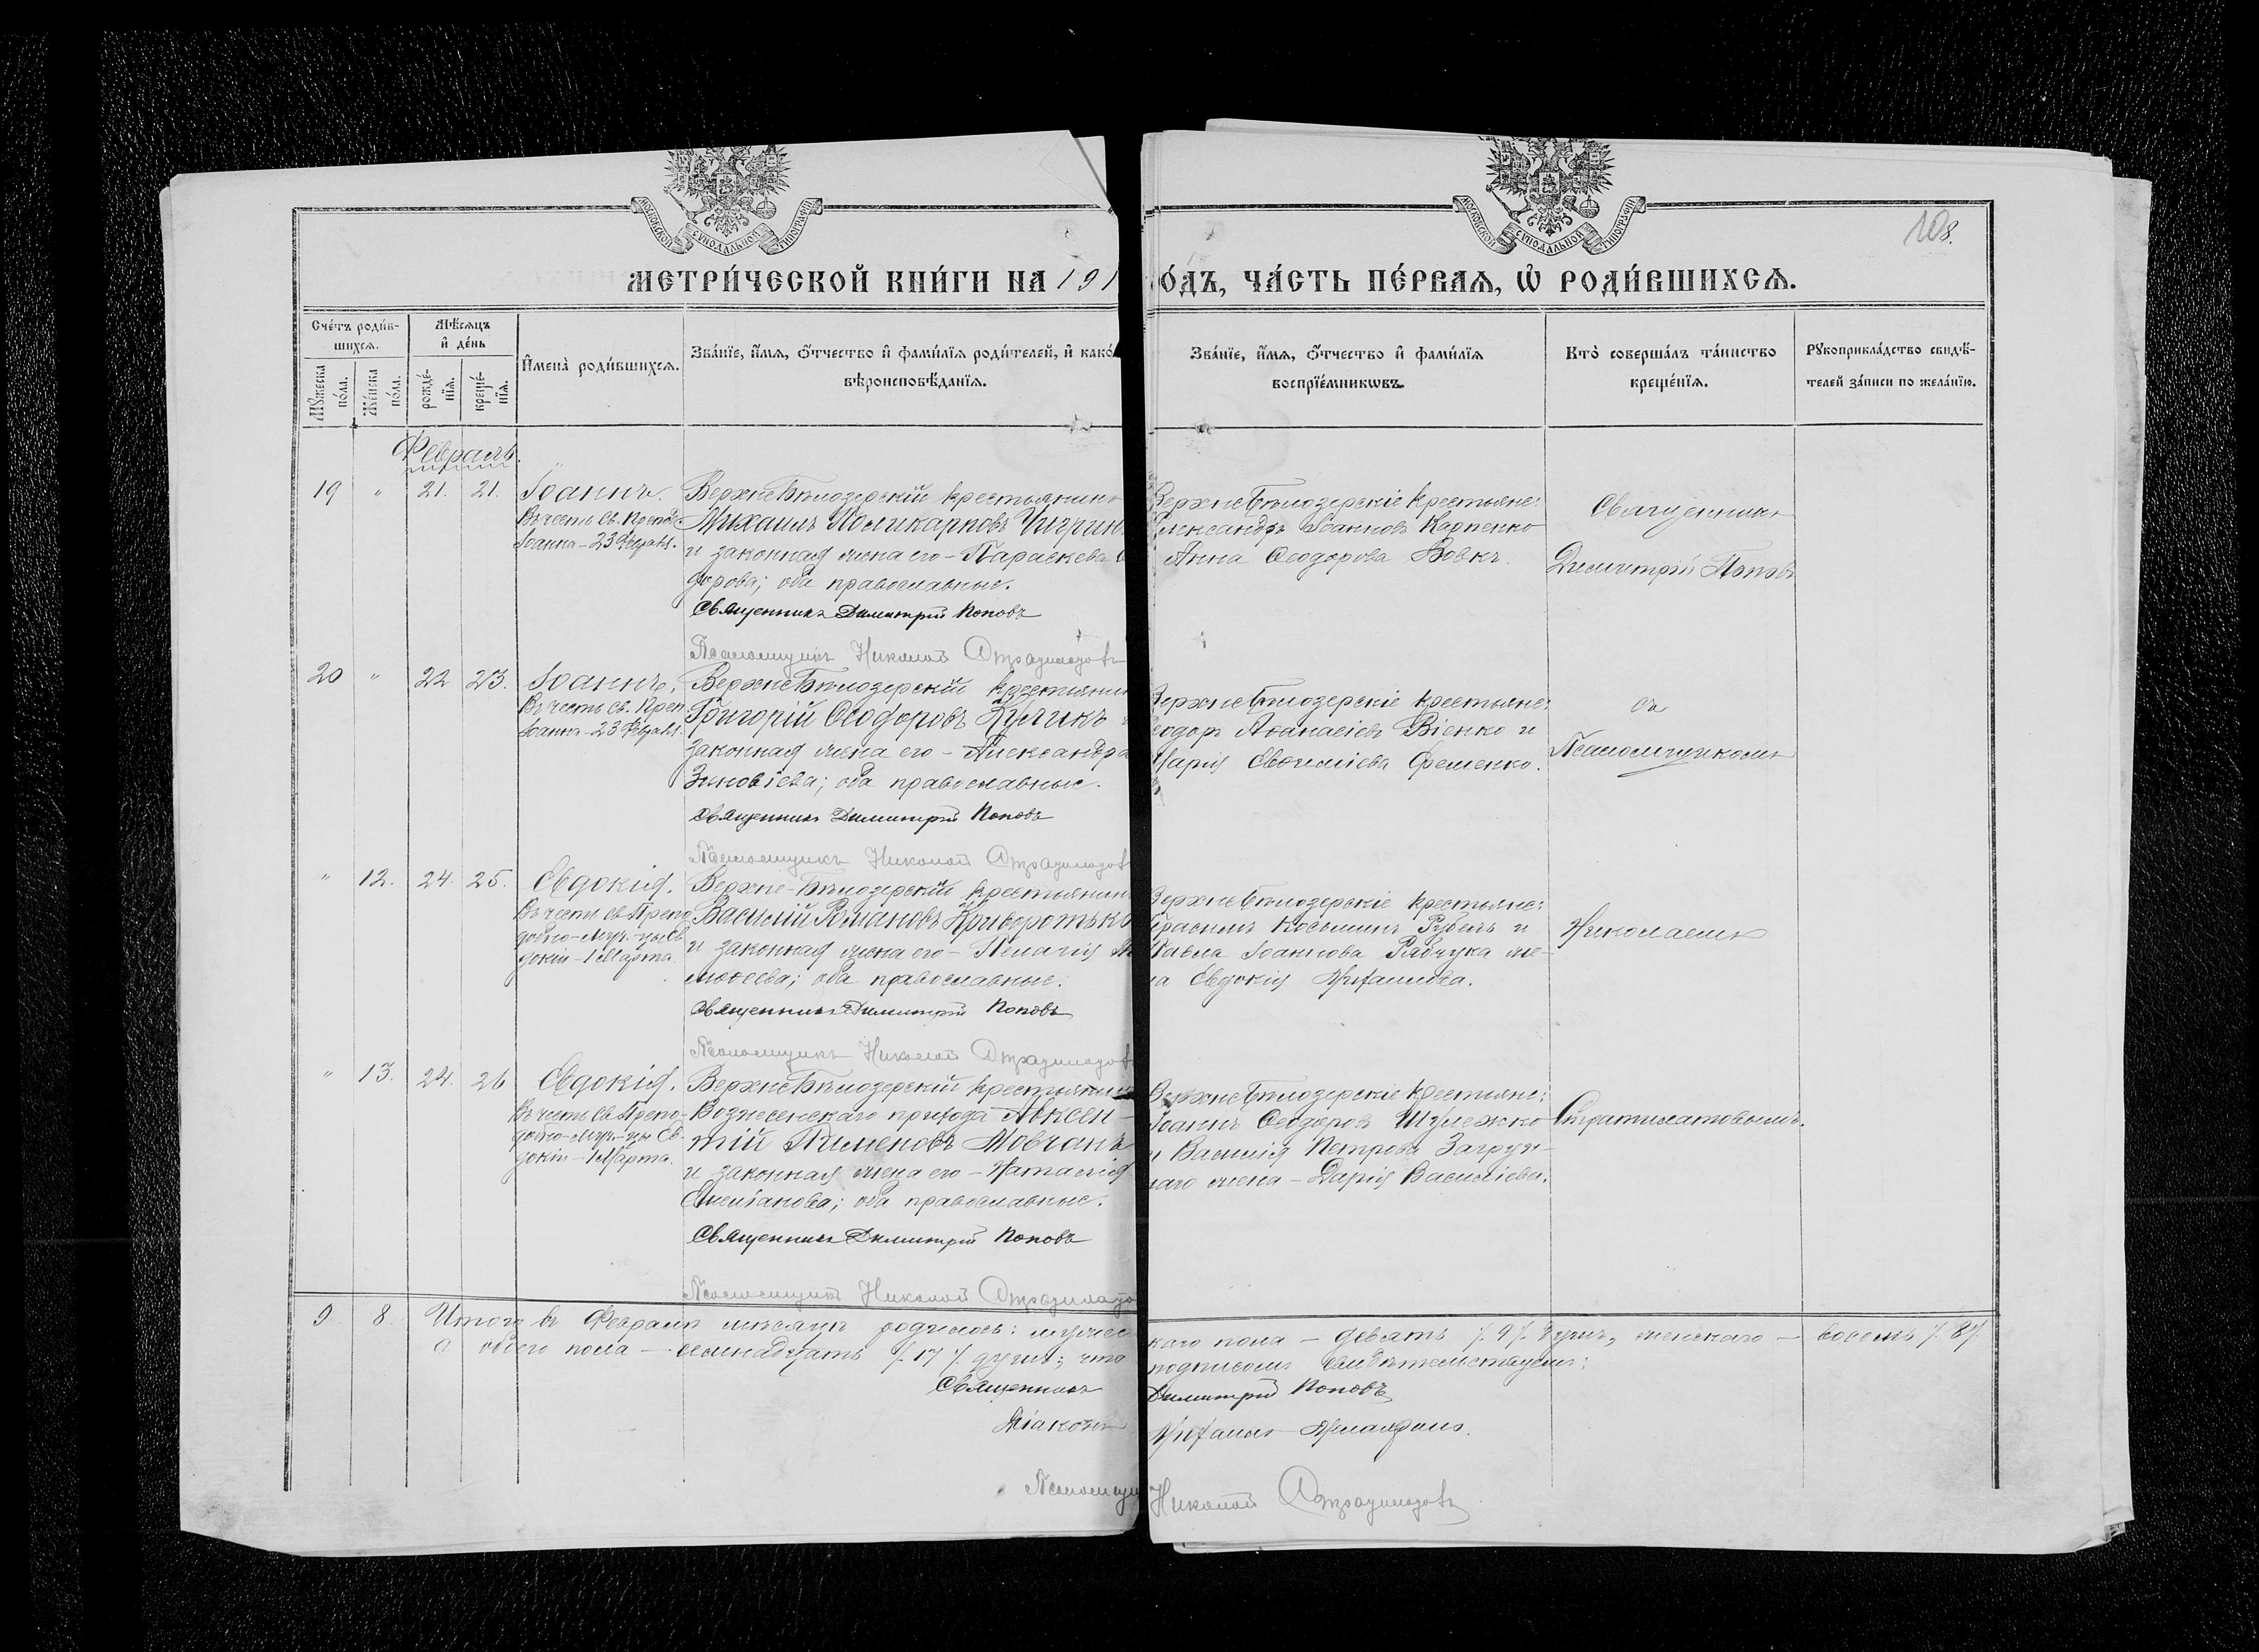 МОСКОВСКОЙ СУНОДАЛЬНОЙ ТИПОГРАФІИ
МОСКОВСКОЙ СУНОДАЛЬНОЙ ТИПОГРАФІИ
108.
МЕТРИ́ЧЕСКОЙ КНИ́ГИ НА 191
О́ДЪ, ЧА́СТЬ ПЕ́РВАѦ, Ѡ҆ РОДИ́ВШИХСѦ.
Сче́тъ роди́в-
шихсѧ.
Мѣ́сѧцъ
и҆ де́нь
Мꙋ́жеска
по́ла.
Же́нска
по́ла.
рожде́-
нїѧ.
креще́-
нїѧ.
И҆мена̀ роди́вшихсѧ.
Зва́нїе, и҆́мѧ, ѻ҆́тчество и҆ фами́лїѧ роди́телей, и҆ како́
вѣроисповѣ́данїѧ.
Зва́нїе, и҆́мѧ, ѻ҆́тчество и҆ фами́лїѧ
воспрїе́мникѡвъ.
Кто̀ соверша́лъ та́инство
креще́нїѧ.
Рꙋкоприкла́дство свидѣ́-
телей за́писи по жела́нїю.
Февраль.
19 " 21. 21. Іоаннъ.
Въ честь Св. Препод.
Іоанна - 23 Февраля.
ВерхнеБѣлозерскій крестьянинъ
Михаилъ Поликарповъ Чигрин
и законная жена его - Параскева Ѳ
дорова; оба православные.
Священникъ Димитрій Поповъ
Псаломщикъ Николай
Верхнебѣлозерскіе крестьяне:
лександръ Іоанновъ Карпенко
Анна Ѳеодорова Вовкъ.
Священникъ
Димитрій Поповъ
20 " 22 23. Іоаннъ.
Въ честь Св. Преп.
Іоанна - 23 Февраля.
ВерхнеБѣлозерскій крестьянин
Григорій Ѳеодоровъ Куликъ и
законная жена его - Александра
Зиновіева; оба православные.
Священникъ Димитрій Поповъ
Псаломщикъ Николай
Верхнебѣлозерскіе крестьяне:
еодоръ Аѳанасіевъ Віенко и
Марія Евѳиміева Еременко.
съ
Псаломщикомъ
" 12. 24. 25. Евдокія.
Въ честь св. Препо
добно-муч-цы Ев
докіи - 1 Марта.
Верхне-Бѣлозерскій крестьянин
Василій Романовъ Криворотько
и законная жена его - Пелагія Ти
моѳеева; оба православные.
Священникъ Димитрій Поповъ
Псаломщикъ Николай
Верхнебѣлозерскіе крестьяне:
Герасимъ Косьминъ Рубель и
Павла Іоаннова Рябчука же-
на Евдокія
Николаемъ
" 13. 24. 26 Евдокія.
Въ честь Св. Препо-
добно-муч-цы Ев-
докіи - 1 Марта.
ВерхнеБѣлозерскій крестьянин
Вознесенскаго прихода Авксен-
тій Пименовъ Мовчанъ
и законная жена его - Наталія
Емеліанова; оба православные.
Священникъ Димитрій Поповъ
Псаломщикъ Николай
Верхнебѣлозерскіе крестьяне:
Іоаннъ Ѳеодоровъ Шулежко
и Василія Петрова Загруд-
наго жена - Дарія Василіева.
Стратилатовымъ.
9 8. Итого въ Февралѣ мѣсяцѣ родилось: мужес
каго пола - девять /.9/. душъ, женскаго - восемь /.8/.
а обоего пола - семнадцать /.17/. душъ; что
подписомъ свидѣтельствуемъ:
Священникъ
Димитрій Поповъ
Діаконъ
Псаломщи
Николай